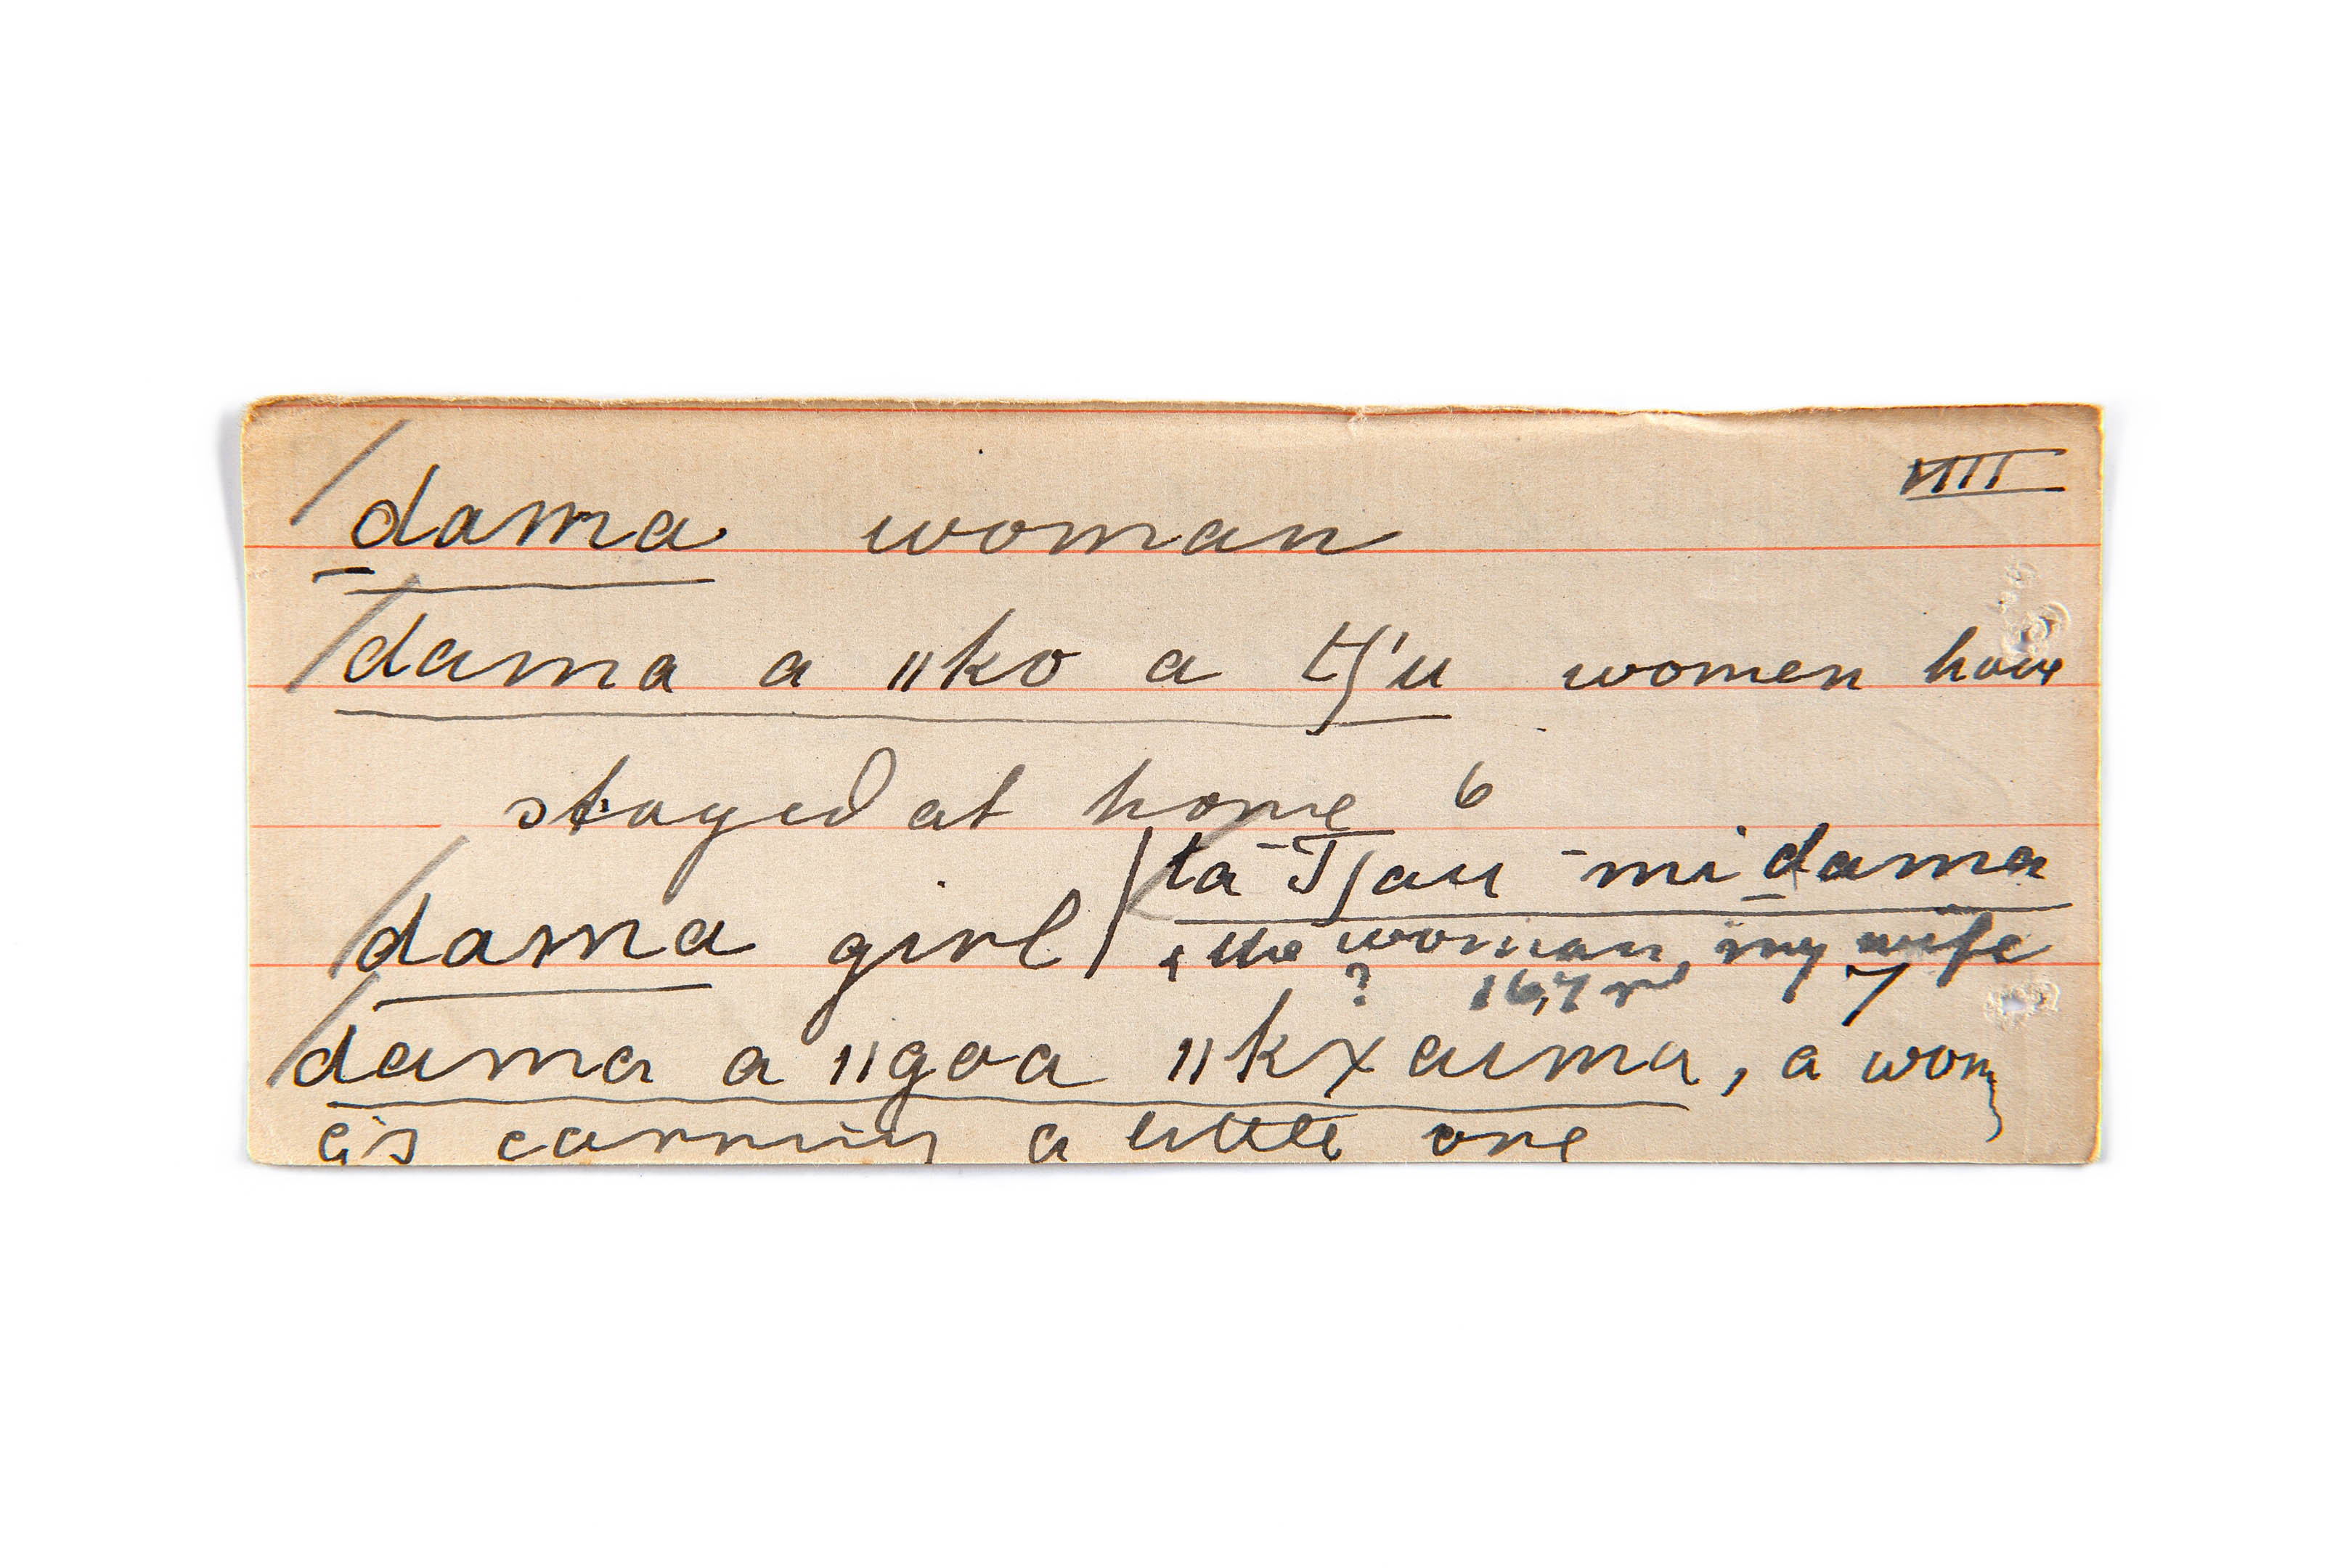 VIII
/dama woman
/dama a ǁko a tʃ'u women have
stayed at home 6
/dama girl
ta ̄Tʃau ̄mi dama
the woman, my wife
? 7
/dama a ǁgoa ǁkxauma, a wom
is carrying a little one